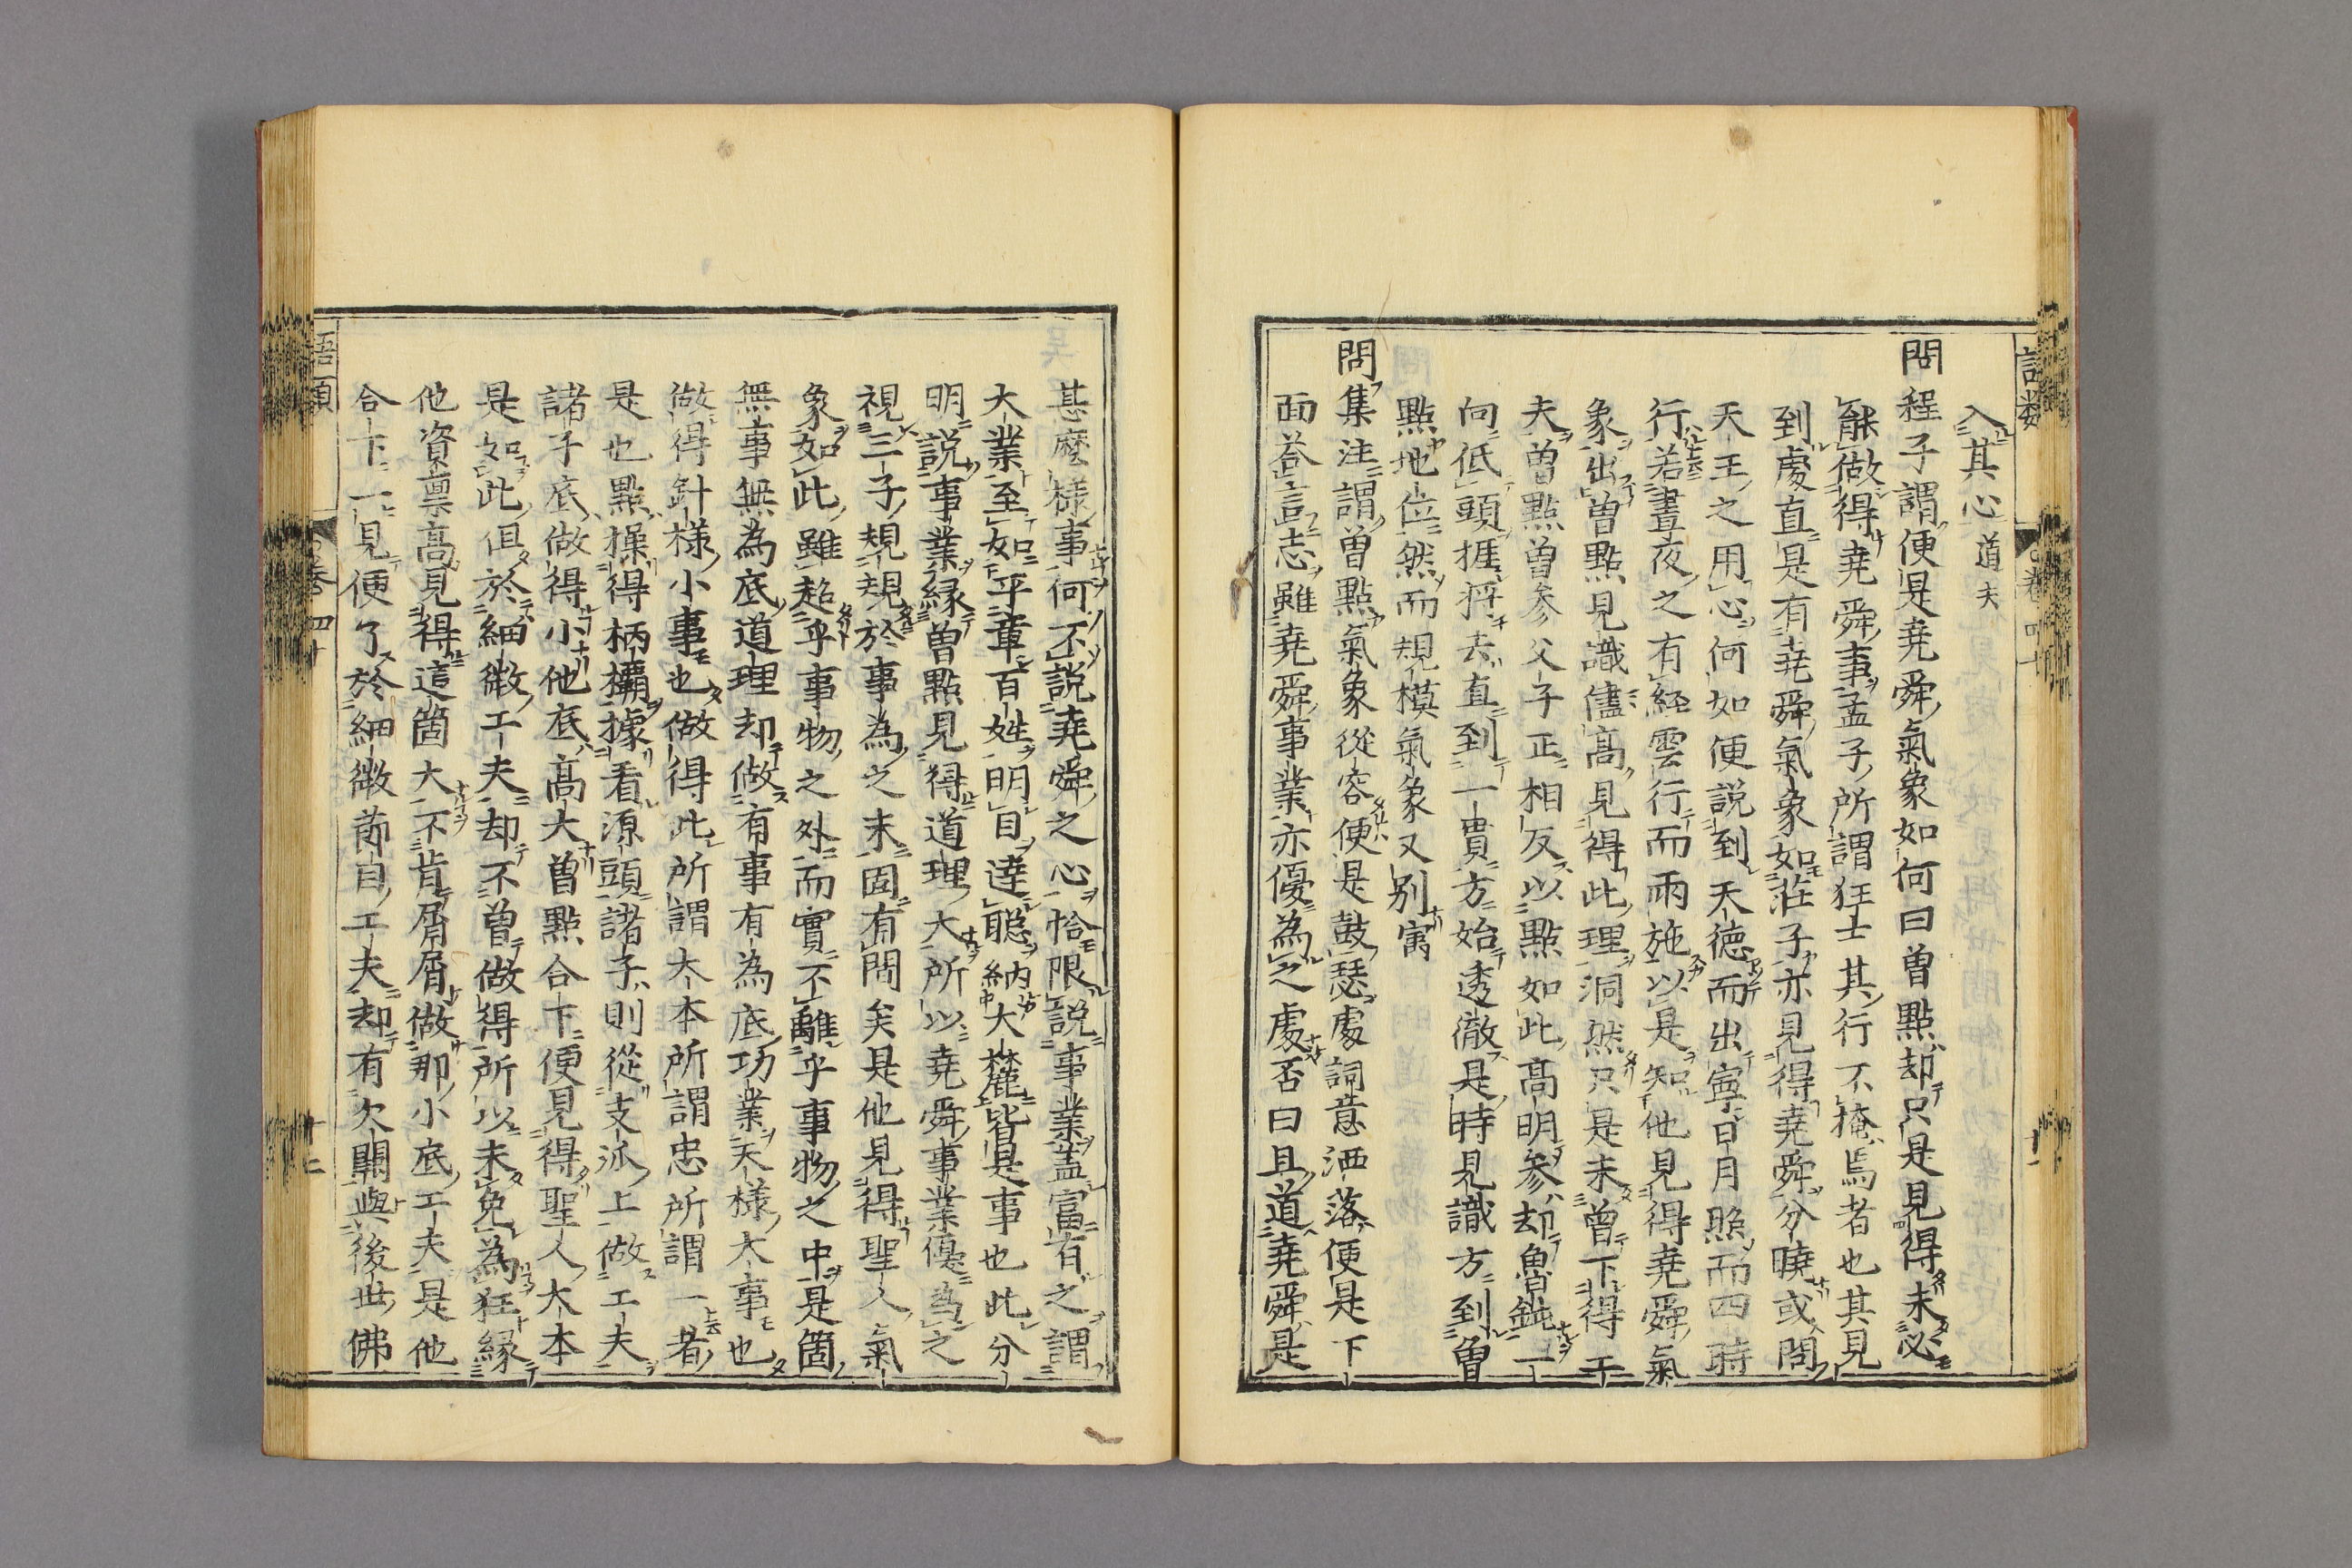 語類
卷四十
十一
入其心道夫
問程子謂便是堯舜氣象如何曰曾點却只是見得未必
能做得堯舜事孟子所謂狂士其行不掩焉者也其見
到處直是有堯舜氣象如莊子亦見得堯舜分曉或問
天王之用心何如便說到天德而出寧日月照而四時
行若晝夜之有経雲行而雨施以是知他見得堯舜氣
象出曾點見識儘高見得此理洞然只是未曾下得工
夫曾點曾參父子正相反以點如此高明參却魯鈍一
向低頭捱将去直到一貫方始透徹是時見識方到曾
點地位然而規模氣象又別㝢
問集注謂曾點氣象從容便是鼓瑟處詞意洒落便是下
面荅言志雖堯舜事業亦優為之處否曰且道堯舜是
甚麽樣事何不說堯舜之心恰限說事業蓋富有之謂
大業至如平章百姓明目達聰納大麓皆是事也此分
明說事業縁曾點見得道理大所以堯舜事業優為之
視三子規規於事為之末固有間矣是他見得聖人氣
象如此雖超乎事物之外而實不離乎事物之中是箇
無事無為底道理却做有事有為底功業天樣大事也
做得針樣小事也做得此所謂大本所謂忠所謂一者
是也點操得柄欛據看源頭諸子則從支派上做工夫
諸子底做得小他底高大曾點合下便見得聖人大本
是如此但於細微工夫却不曾做得所以未免為狂縁
他資禀高見得這箇大不肯屑屑做那小底工夫是他
合下一見便了於細微節目工夫却有欠闕與後世佛
語類
卷四十
十二